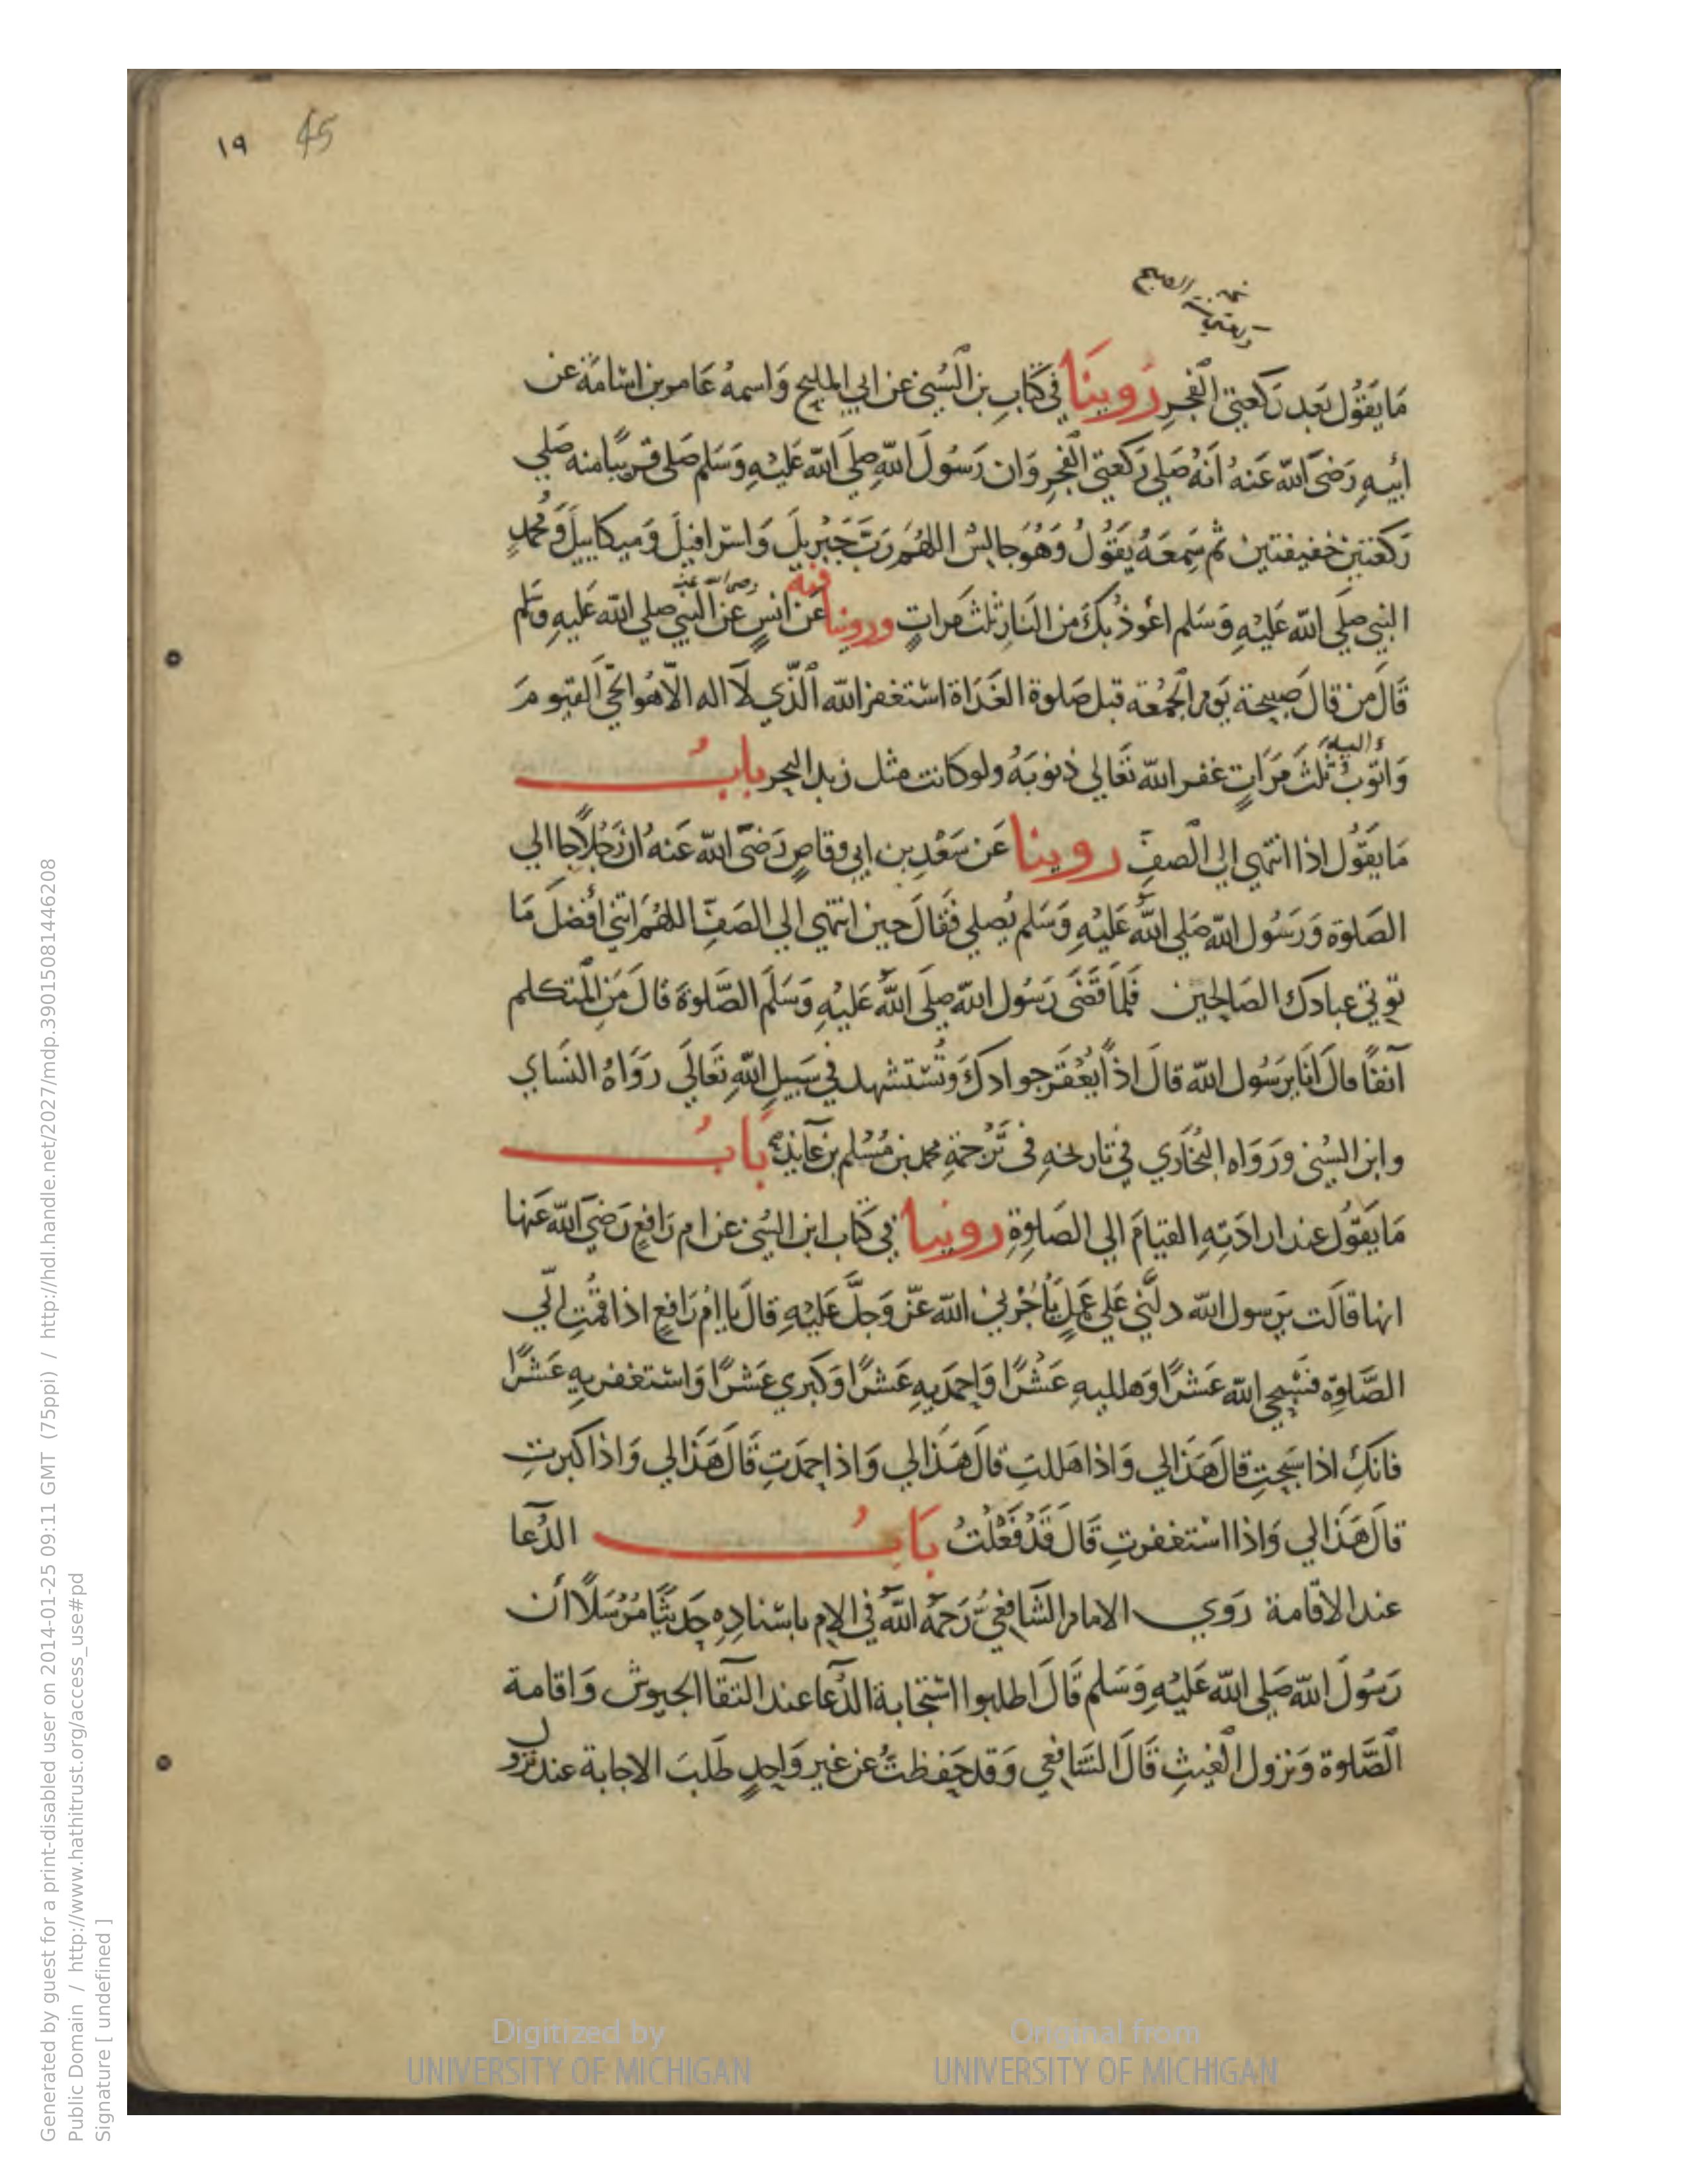 ١٩ 45
مَا يَقُوْلُ بَعد رَكعتي الفَجرِ رَوينَا في كتابِ بن السُّني عن ابي المليح وَاسمهُ عَامر بن اسَامَة عَن
ابيهِ رَضيَ الله عَنهُ انَهُ صَلى رَكعتي الفجرِ وَان رَسُولَ اللهِ صلى الله عَليهِ وَسَلم صَلى قريبًا منه صَلى
رَكعتين خفيفتين ثم سَمِعَهُ يَقوُلُ وَهُوَ جالسٌ اللهُم رَبَّ جَبْريلَ وَاسْرافيلَ وَميكاييلَ وَمُحمدٍ
النبي صلى الله عَليْهِ وَسَلم اعُوذ بكَ من النَارِ ثلثَ مَراتٍ وروينا فيه عَن انسٍ رضى الله عنه عَن النَّبي صلى الله عَليهِ وسَلم
قَالَ من قالَ صَبيحة يَوم الجُمْعَة قبل صَلوة الغَدَاة استغفرُ الله الذَّي لاَ اله الاّ هُوَ الحَّي القيومَ
وَاتوُبُ اليه ثلثَ مَرَاتٍ غفر الله تَعَالي ذنوبَهُ ولو كانت مثل زبد البحر بابُ
مَا يقوُل اذا انتهي الي الصفِّ روينا عَن سَعْدِ بن ابي وقاصٍ رَضيَ الله عَنهُ ان رَجُلاً جا الي
الصَلوة وَرَسُول الله صَلي اللهُ عَليْهِ وَسَلم يُصلي فقَالَ حين انتهي الي الصَفِّ اللهُمَ اتني افضَلَ مَا
توتي عبادك الصَالحين فَلمَا قَضَى رَسُول الله صلى اللهُ عَليْهِ وَسَلَم الصَّلوةَ قالَ مَنِ المُتكلم
آنفًا قالَ انَا يرَسُول الله قالَ اذًا يُعْقَرَ جوادكَ وَتُسْتشهد في سَبيلِ اللهِ تَعَالَي رَوَاهُ النسَاي
وابن السُني وَرَوَاه البُخَاري في تاريخهِ في تَرْجمَةِ محمد بن مُسْلم بن عَآيذٍ بَابُ
مَا يَقوُل عند ارادَتِهِ القيامَ الي الصَلوةِ روينا في كتاب ابن السُني عن ام رَافعٍ رَضيَ الله عَنها
انها قالَت يرَسول الله دلَّني عَلي عَملٍ يَأجُرْني الله عزّ وَجلَّ عَليْهِ قالَ يا امْ رَافعٍ اذا قمْتِ الّي
الصَّلوةِ فسَبّحي الله عَشرًا وَهلليهِ عَشْرًا وَاحمَديهِ عَشْرًا وَكبّري عَشْرًا وَاستغفريهِ عَشْرًا
فانكِ اذا سَبحتِ قالَ هَذَا لي وَاذا هَللتِ قالَ هَذَا لي وَاذا حمَدتِ قَالَ هَذَا لي وَاذا كبرتِ
قالَ هَذَا لي وَاذا استغفرتِ قَالَ قَدْ فَعَلْتُ بَابُ الدُّعَا
عند الاقامة رَوَي الامام الشَافِعيُّ رَحمَهُ اللهُ في الام باسْنادِهِ حَديثًا مُرْسَلاً ان
رَسُولَ الله صَلي الله عَليْهِ وَسَلم قَالَ اطلبوا استجابة الدُّعَا عند التقَا الجيوش وَاقامة
الصَّلوة وَنزول الغيثِ قَالَ الشَافعي وَقد حَفظتُ عن غير وَاحدٍ طَلَبَ الاجابة عند نزول
Digitized by UNIVERSITY OF MICHIGAN
Original from UNIVERSITY OF MICHIGAN
Generated by guest for a print-disabled user on 2014-01-25 09:11 GMT (75ppi) / http://hdl.handle.net/2027/mdp.39015081446208
Public Domain / http://www.hathitrust.org/access_use#pd
Signature [ undefined ]